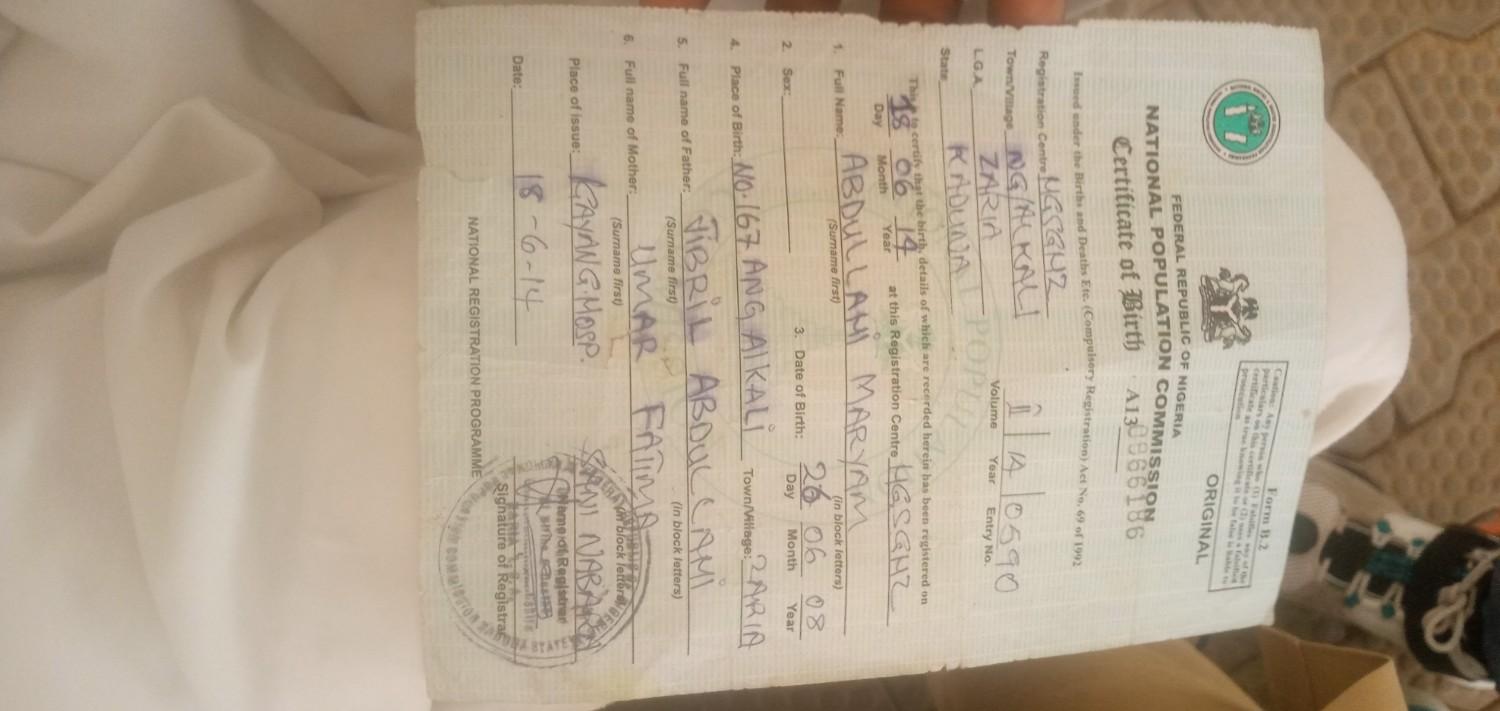 Form B.2
Caution: Any person who (1) Falsifies any of the
particulars on this certificate or (2) uses a falsified
certificate as true knowing it to be false is liable to
prosecution
ORIGINAL
FEDERAL REPUBLIC OF NIGERIA
NATIONAL POPULATION COMMISSION
Certificate of Birth A13
Issued under the Births and Deaths Etc. (Compulsory Registration) Act No. 69 of 1992
Registration Centre HGSGHZ
Town/Village NG/ALKALI
L.G.A. ZARIA
State KADUNA
14 0590
Volume Year Entry No.
This is to certify that the birth, details of which are recorded herein has been registered on
18 06 14 at this Registration Centre HGSGHZ
Day Month Year
1. Full Name: ABDULLAHI MARYAM
(Surname first) (in block letters)
2. Sex: 3. Date of Birth: 26 06 08
Day Month Year
4. Place of Birth: NO.167 ANG AlKALI Town/Village: ZARIA
5. Full name of Father: JIBRIL ABDULLAHI
(Surname first) (in block letters)
6. Full name of Mother: UMAR FATIMA
(Surname first) (in block letters)
Place of issue: HOSP.
Name of Registrar
Date: 18-6-14
Signature of Registrar
NATIONAL REGISTRATION PROGRAMME